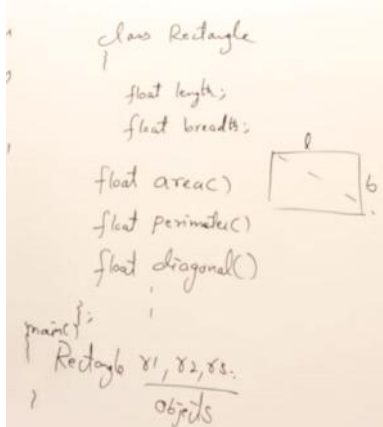 class Rectangle
{
float length;
float breadth;
l
b
float area()
float perimeter()
float diagonal()
};
main()
{ Rectangle r1, r2, r3;
objects
}